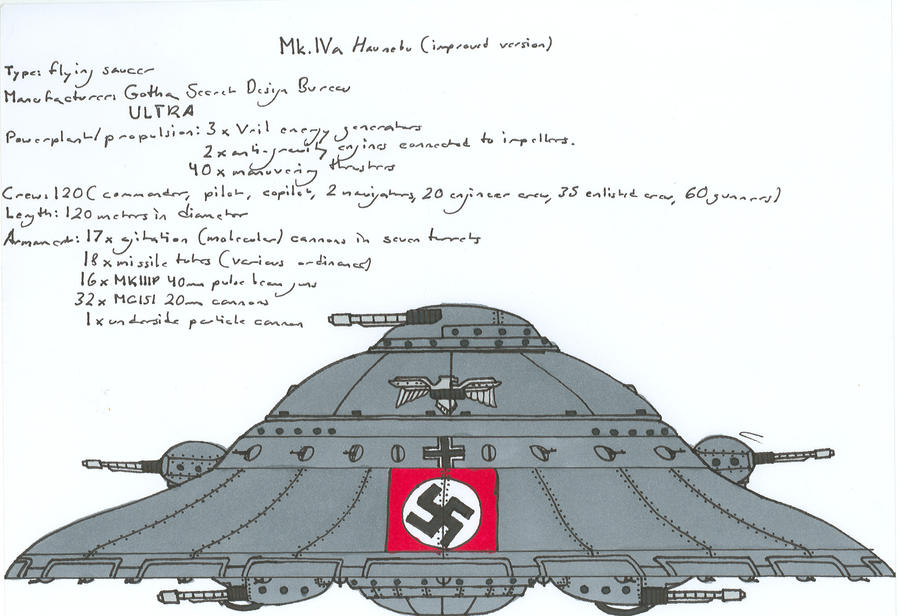 Mk.IVa Haunebu (improved version)
Type: flying saucer
Manufacturer: Gotha Secret Design Bureau
ULTRA
Powerplant/propulsion: 3x Vril energy generators
2x anti-gravity engines connected to impellers.
40x manuvering thrusters
Crew: 120 (commander, pilot, copilot, 2 navigators, 20 engineer crew, 35 enlisted crew, 60 gunners)
Length: 120 meters in diameter
Armament: 17x agitation (molecular) cannons in seven turrets
18x missile tubes (various ordinance)
16x MKIIIP 40mm pulse beam guns
32x MG151 20mm cannons
1x underside particle cannon